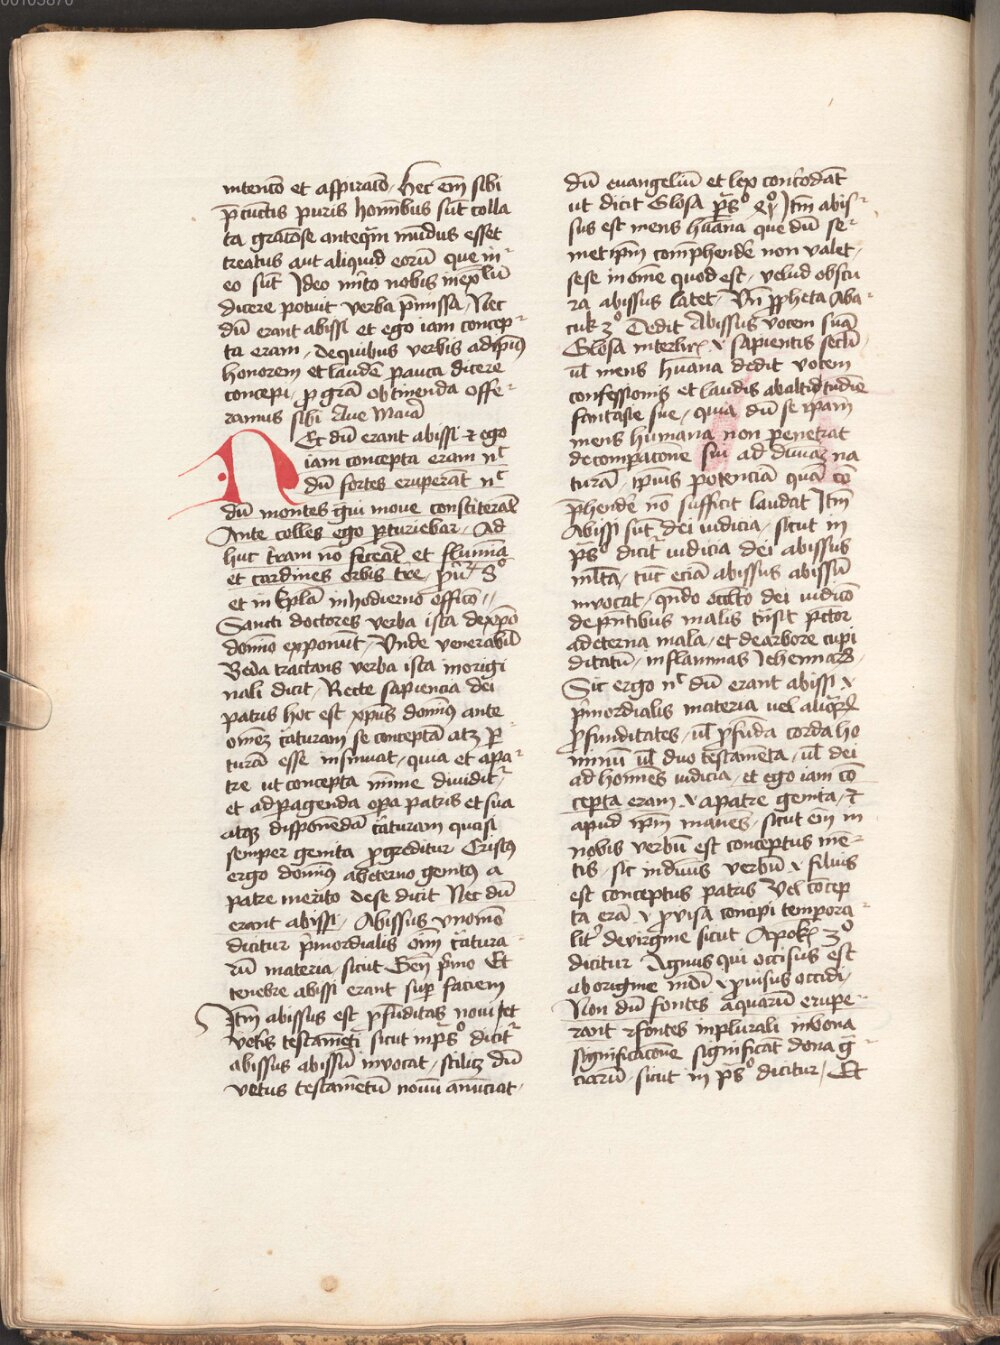 00105876
intenc̄o et aspirac̄o / hec em̄ sibi
p̄ cunctis puris homībus sūt colla
ta grac̄ose anteqꝫ̄ mūdus esset
creatus aut aliquid eorū que in
eo sūt Ideo mīto nobis in expl̄ū
dicere potuit verba p̄missa / Nec
dū erant abissi et ego iam concep
ta eram / de quibus verbis ad ip̄iꝰ
honorem et laudē pauca dicere
concepi / ꝓ gr̄a obtinenda offe
ramus sibi Aue Maria
Ec dū erant abissi ⁊ ego
iam concepta eram nᶜ
dū fortes eruperāt nᶜ
dū montes gͣui mole constiterāt
Ante colles ego ꝑturiebar / Ad
huc t̄ram nō feceāt et flumīa
et cardines orbis tr̄e / ꝓūꝝ 8º
et in Epl̄a in hodierno officō //
Sancti doctores verba ista de xp̄o
domīo exponūt / Vnde venerabil̄
Beda tractans verba ista in origi
nali dicit / Recte sapiencia dei
patris hoc est xp̄us domīꝰ ante
om̄eꝫ c̄aturam se conceptā atqꝫ ꝑ
turā esse insinuat / quia et a pa
tre ut concepta mīme diuiditᷣ
et ad ꝑagenda oꝑa patris et sua
atqꝫ disponēdā c̄aturam quasi
semper genita ꝓgreditur Cristꝰ
ergo domīꝰ ab eterno genitꝰ a
patre merito de se dicit Nec dū
erant abissi / Abissus vno mō
dicitur p̄mordialis om̄ c̄atura
rū materia / sicut Geñ p̄mo Et
tenebre abissi erant suꝑ faciem
Itm̄ abissus est ꝓfūditas noui et
vetis testamēti sicut in p̄sº dicitᷣ
abissus abissū inuocat / scilicꝫ dū
vetus testamētū nouū anūciat /
dū euangeliū et lex concordāt
ut dicit Glosa p̄sº xlj Itm̄ abis
sus est mens hūana que dū se
metip̄m compᷓhendē non valet /
sese in om̄e quod est / velud obscu
ra abissus latet / Vn̄ ꝓpheta Aba
cuk 3º Dedit Abissus vocem suā
Glosa interlīꝝ .i. sapientis sc̄dī
ul̄ mens hūana dedit vocem
confessionis et laudis ab altitudīe
fantasie sue / quia dū se ip̄am
mens humana non penetrat
de compac̄one sui ad diuināꝫ na
turā / ip̄ius potenciā quā cō
p̄hendē nō sufficit laudat Itm̄
Abissi sūt dei iudicia / sicut in
p̄sº dicitᷣ iudicia dei abissus
ml̄ta / tūc eciā abissus abissū
inuocat / qn̄do occl̄to dei iudicō
de pn̄tibus malis tn̄sit pc̄tor
ad eterna mala / et de arbore cupi
ditatū / in flammas Iehennaꝝ /
Sic ergo nᶜ dū erant abissi .i.
p̄mordialis materia uel aliqͣꝝ
ꝓfūditates / ul̄ ꝓfūda corda ho
minū ul̄ duo testamēta / ul̄ dei
ad homīes iudicia / et ego iam cō
cepta eram .i. a patre genita / ⁊
apud ip̄m manēs / sicut em̄ in
nobis verbū est conceptus mē
tis / sic in diuis verbū .i. filius
est conceptus patris Vel concep
ta erā .i. ꝓuisa concipi tempora
litᷣ de virgine sicut Apok̄ 3º
dicitur Agnus qui occisus est
ab origine mūdi .i. ꝓuisus occidi /
Non dū fontes aquarū erupe
rant ⁊ fontes in plurali in bona
significac̄one significāt dona gͣ
ciarū / sicut in p̄sº dicitur / Et